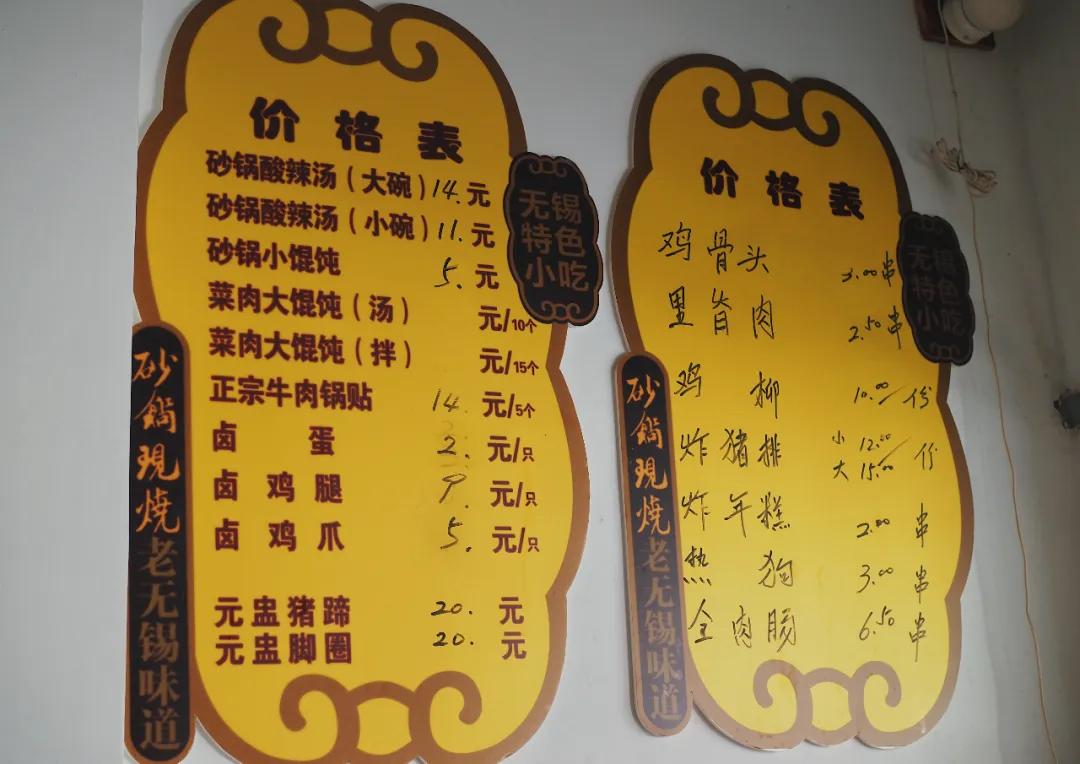 价格表
砂锅酸辣汤(大碗)14.元
砂锅酸辣汤(小碗)11.元
砂锅小馄饨 5.元
菜肉大馄饨(汤) 元/10个
菜肉大馄饨(拌) 元/15个
正宗牛肉锅贴 14.元/5个
卤蛋 2.元/只
卤鸡腿 9.元/只
卤鸡爪 5.元/只
元盅猪蹄 20.元
元盅脚圈 20.元
无锡
特色
小吃
砂鍋現燒老无锡味道
价格表
鸡骨头 3.00串
里脊肉 2.50串
鸡柳 10.00/份
炸猪排 小12.00/份
大15.00
炸年糕 2.00串
热狗 3.00串
全肉肠 6.50串
无锡
特色
小吃
砂鍋現燒老无锡味道